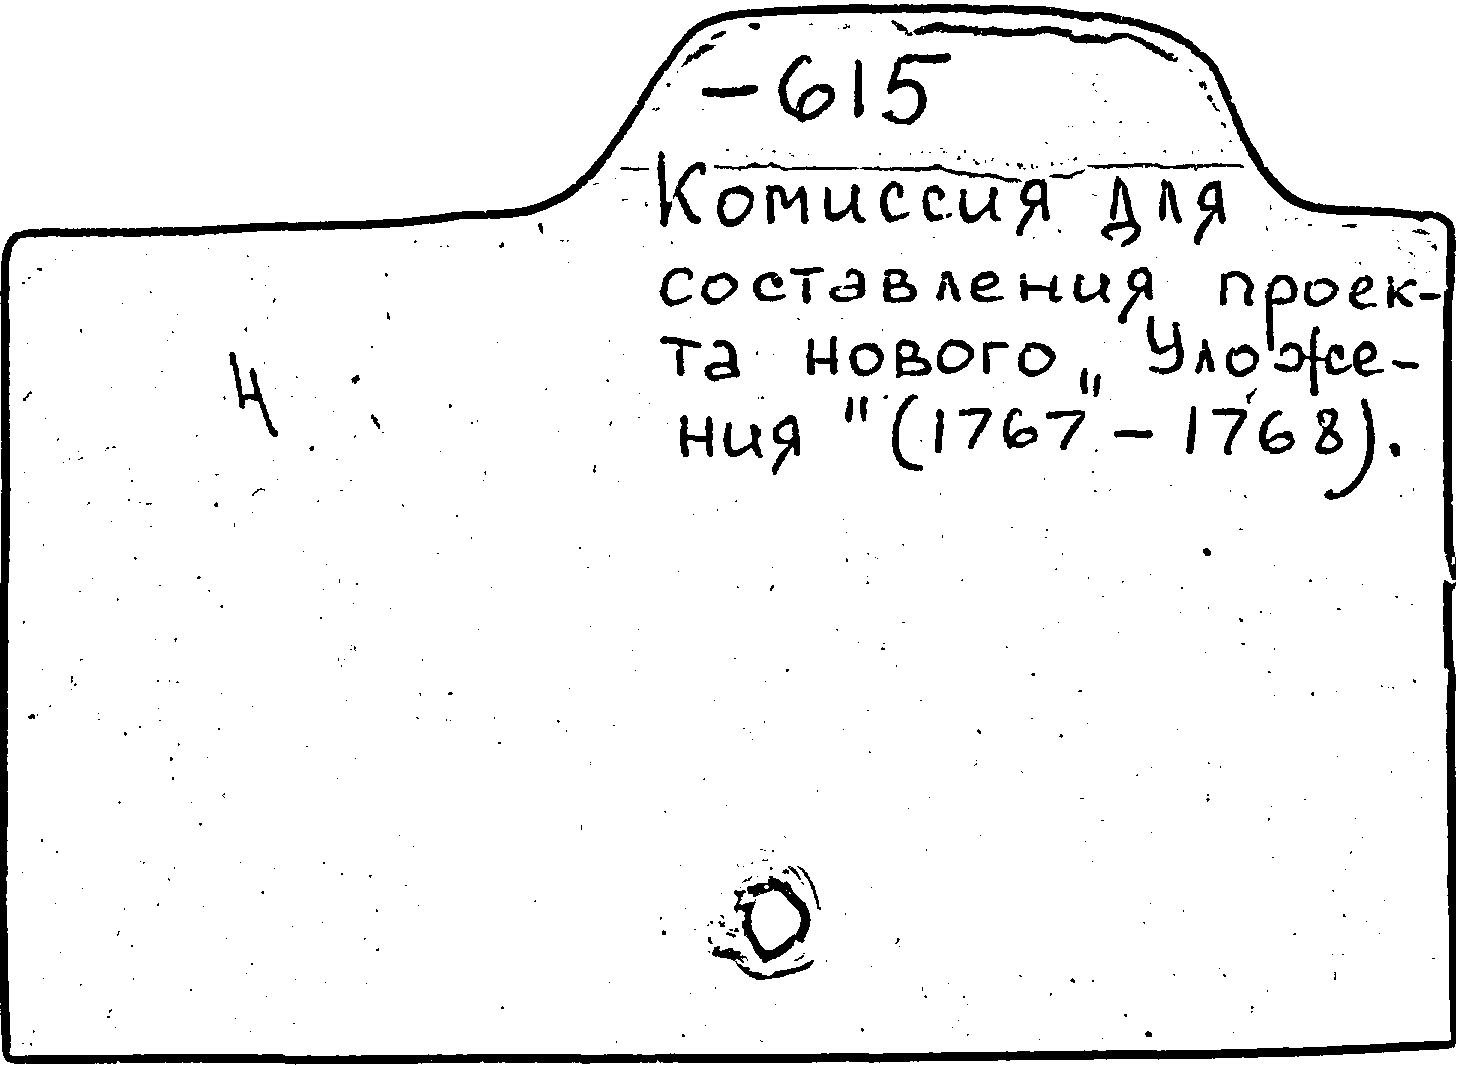 -615
Комиссия для
составления проек-
та нового „Уложе-
ния" (1767 - 1768).